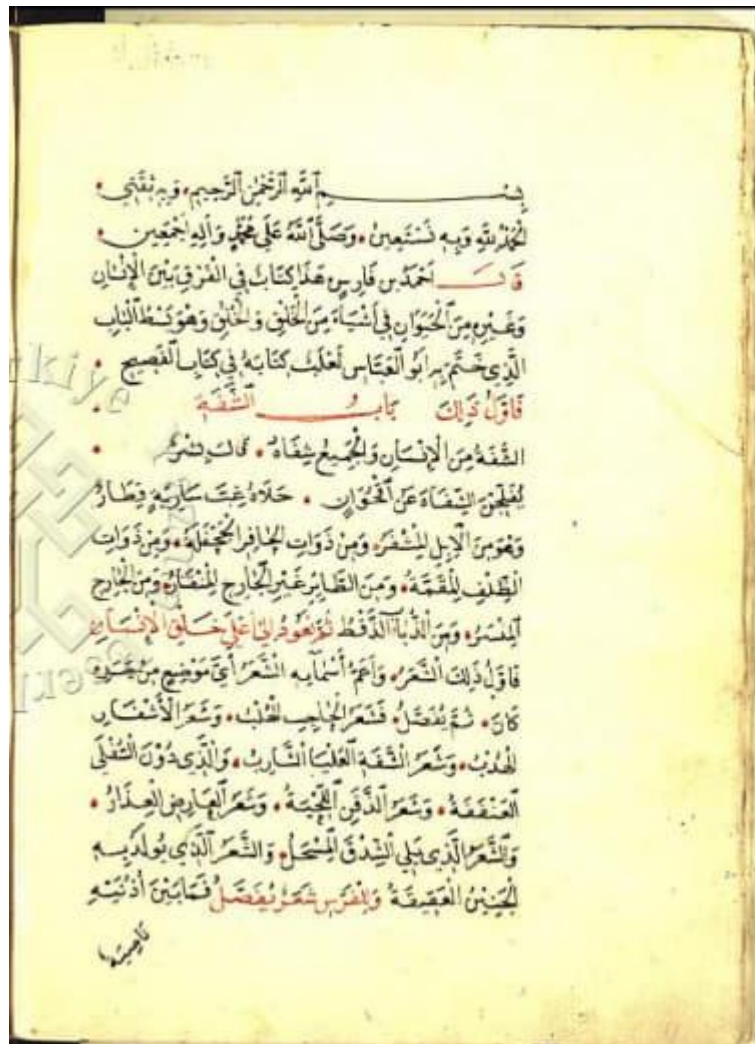 بِسْمِ ٱللَّهِ ٱلرَّحْمٰنِ ٱلرَّحِيمِ وَبِهِ ثِقَتِي
الْحَمْدُ لِلَّهِ وَبِهِ نَسْتَعِينُ وَصَلَّى ٱللَّهُ عَلَى مُحَمَّدٍ وَآلِهِ أَجْمَعِينَ
قَالَ أَحْمَدُ بْنُ فَارِسٍ هَذَا كِتَابٌ فِي الْفَرْقِ بَيْنَ الْإِنْسَانِ
وَغَيْرِهِ مِنَ الْحَيَوَانِ فِي أَشْيَاءَ مِنَ الْخَلْقِ وَالْخُلُقِ وَهُوَ نَمَطُ الْبَابِ
الَّذِي خَتَمَ بِهِ أَبُو الْعَبَّاسِ ثَعْلَبٌ كِتَابَهُ فِي كِتَابِ الْفَصِيحِ
فَأَوَّلُ ذَلِكَ بَابُ الشَّفَةِ
الشَّفَةُ مِنَ الْإِنْسَانِ وَالْجَمِيعُ شِفَاهٌ قَالَ
الشِّفَاهَ عَنْ أُقْحُوَانٍ جَلَاهُ غِبَّ سَارِيَةٍ قِطَارُ
وَهُوَ مِنَ الْإِبِلِ الْمِشْفَرُ وَمِنْ ذَوَاتِ الْحَافِرِ الْجَحْفَلَةُ وَمِنْ ذَوَاتِ
الظِّلْفِ الْمِقَمَّةُ وَمِنَ الطَّائِرِ غَيْرِ الْجَارِحِ الْمِنْقَارُ وَمِنَ الْجَارِحِ
الْمِنْسَرُ وَمِنَ الذُّبَابِ ثُمَّ نَعُودُ إِلَى أَعْلَى خَلْقِ الْإِنْسَانِ
فَأَوَّلُ ذَلِكَ الشَّعَرُ وَأَعَمُّ أَسْمَائِهِ الشَّعَرُ أَيَّ مَوْضِعٍ مِنْ جَسَدِهِ
كَانَ ثُمَّ يُفَصَّلُ فَشَعَرُ الْحَاجِبِ وَشَعَرُ الْأَشْفَارِ
الْهُدْبُ وَشَعَرُ الشَّفَةِ الْعُلْيَا الشَّارِبُ وَالَّذِي دُونَ السُّفْلَى
الْعَنْفَقَةُ وَشَعَرُ الذَّقَنِ اللِّحْيَةُ وَشَعَرُ الْعَارِضِ الْعِذَارُ
وَالشَّعَرُ الَّذِي يَلِي الشِّدْقَ الْمِسْحَلُ وَالشَّعَرُ الَّذِي يُولَدُ بِهِ
الْجَنِينُ الْعَقِيقَةُ وَلِلْفَرَسِ شَعَرٌ يُفَصَّلُ فَمَا بَيْنَ أُذُنَيْهِ
نَاصِيَةٌ